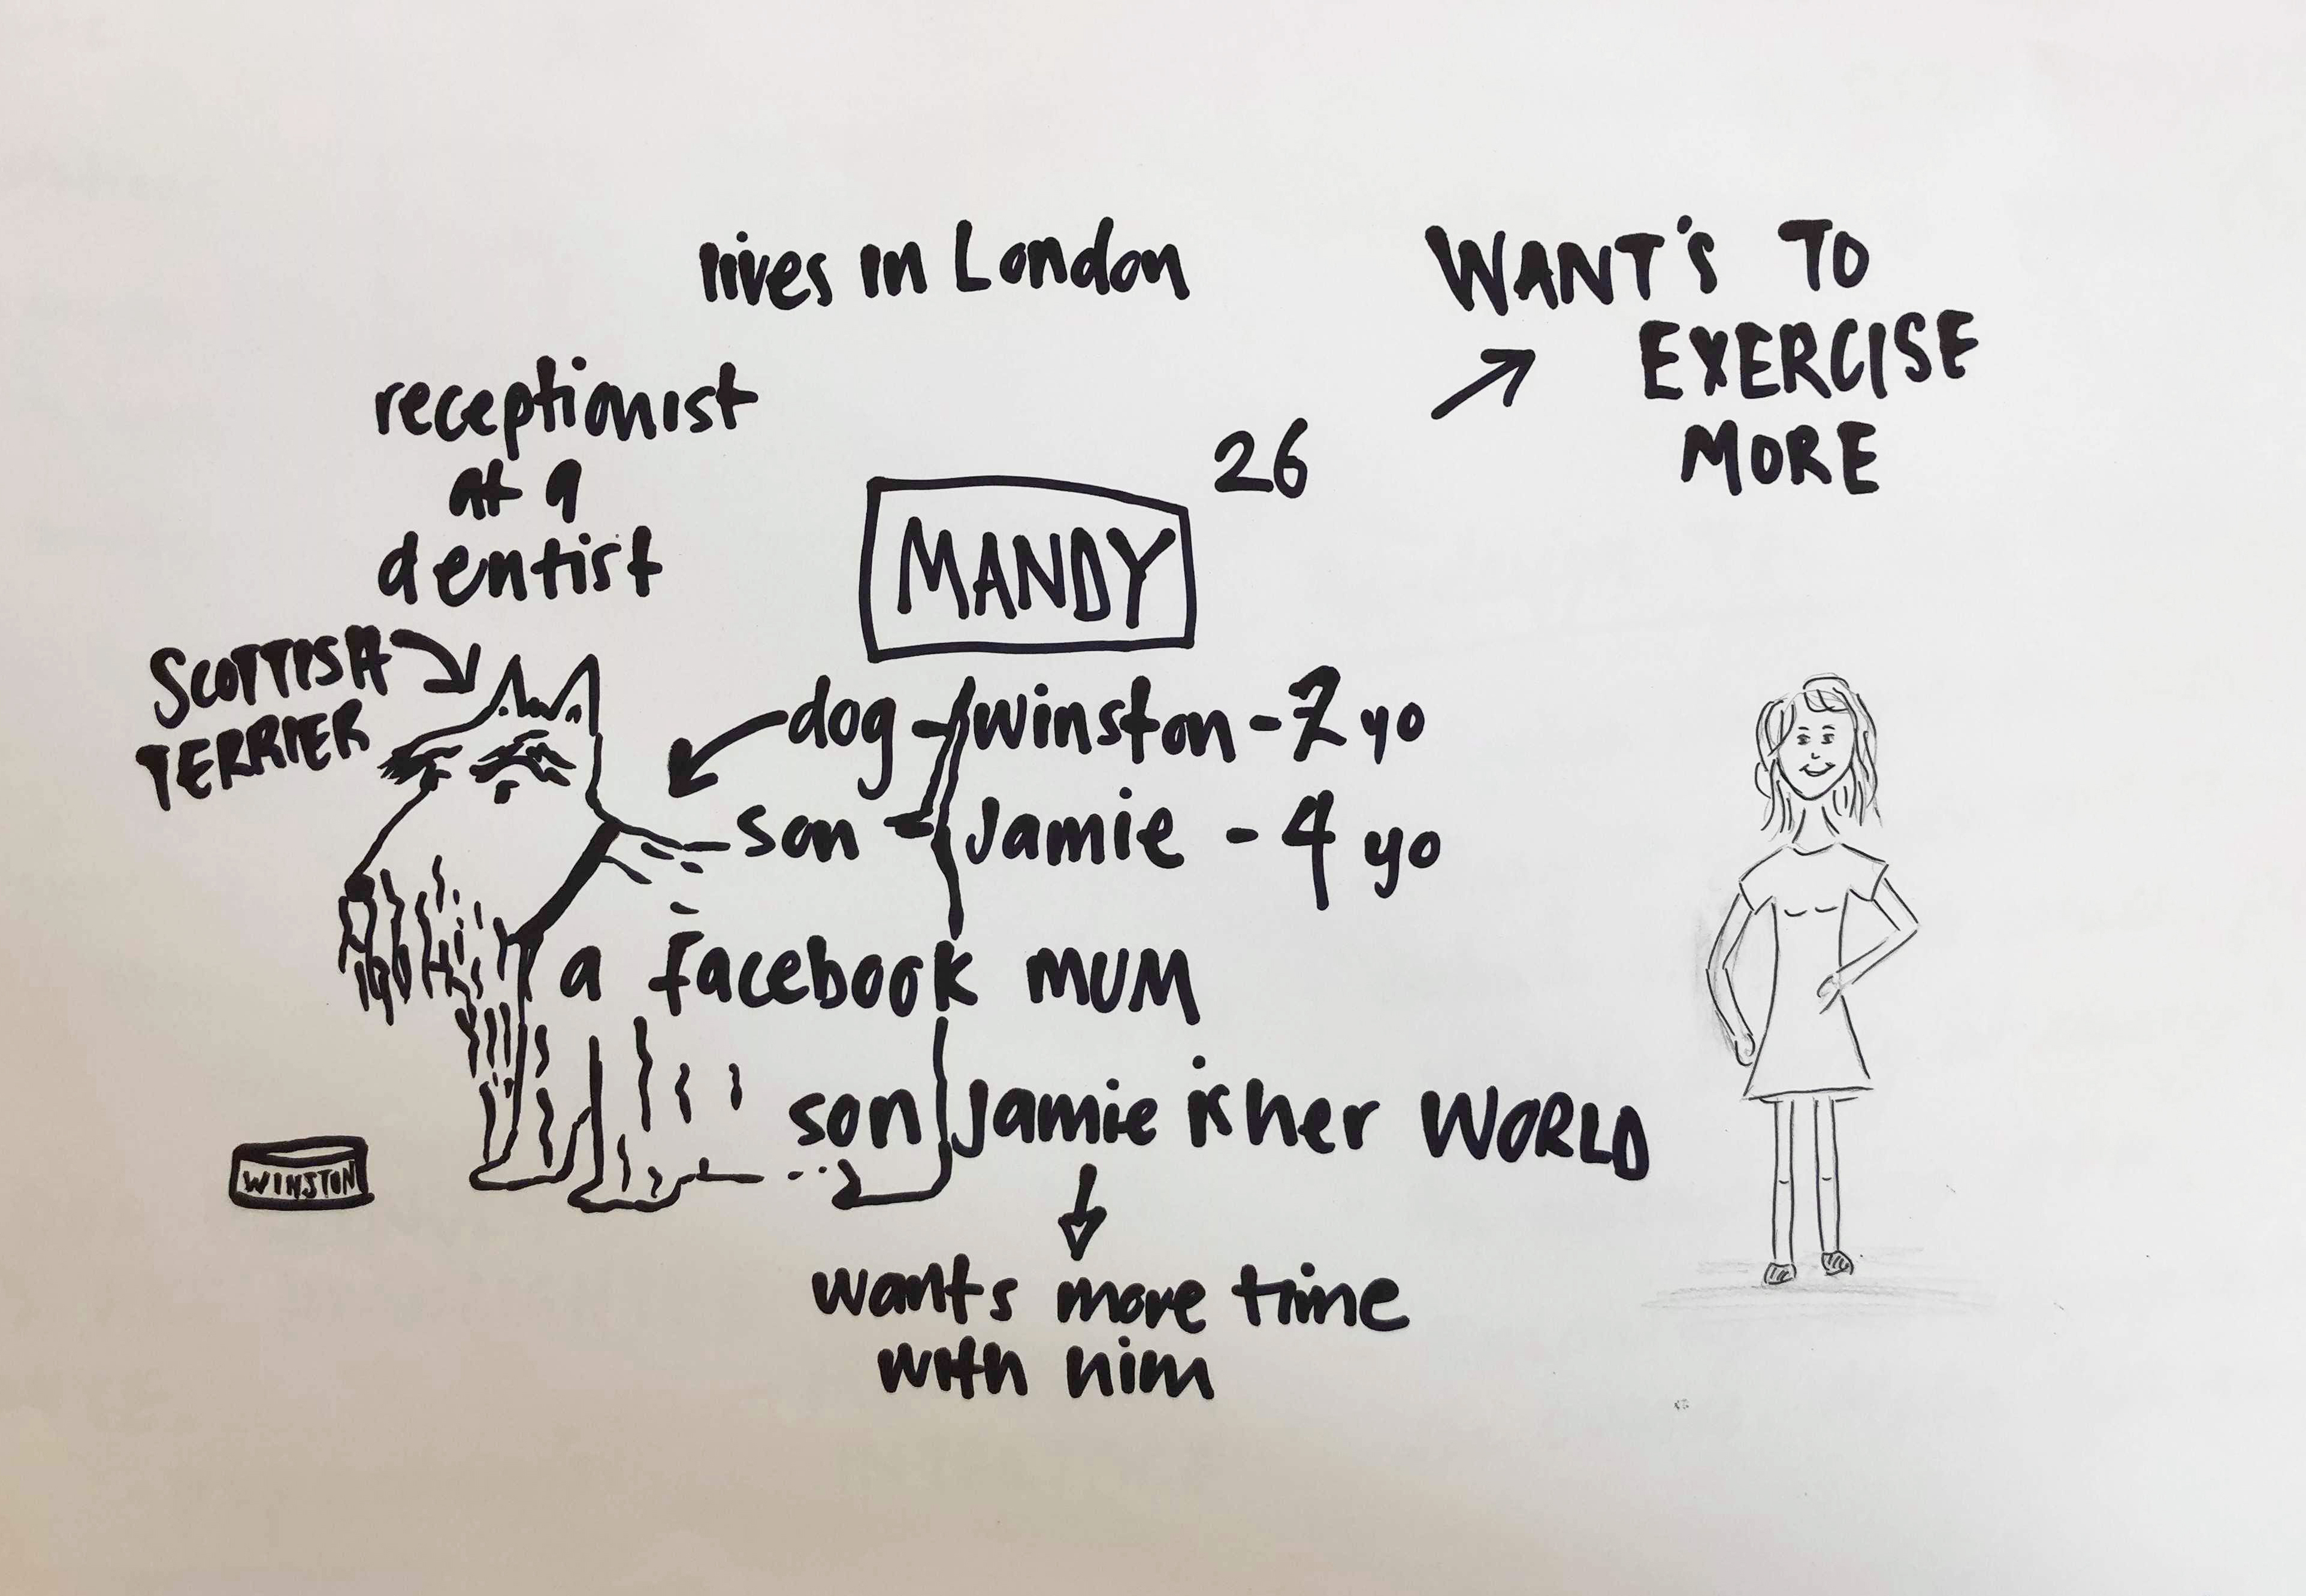 lives in London
WANT'S TO
EXERCISE
MORE
receptionist
at a
dentist
26
MANDY
SCOTTISH
TERRIER
dog - winston - 2 yo
son - Jamie - 4 yo
a facebook MUM
son Jamie is her WORLD
WINSTON
wants more time
with him